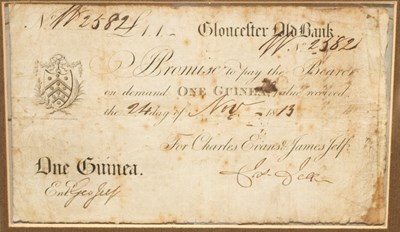 No. W2582 Gloucester Old Bank
W No. 2582
I Promise to pay the Bearer
on demand ONE GUINEA, value received
the 24 day of Nov. 1813
For Charles Evans & James Jelf.
One Guinea.
Jas. Jelf
Entd. Geo Jelf